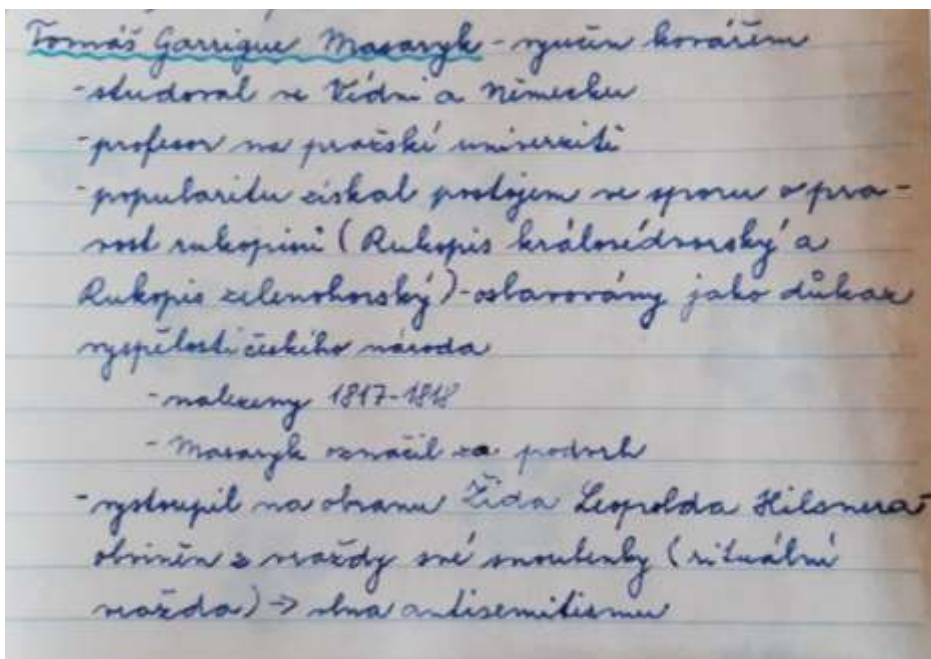 Tomáš Garrigue Masaryk - vyučen kovářem
- studoval ve Vídni a Německu
- profesor na pražské univerzitě
- popularitu získal postojem ve sporu o pra-
vost rukopisů (Rukopis královédvorský a
Rukopis zelenohorský) - oslavovány jako důkaz
vyspělosti českého národa
- nalezeny 1817-1818
- Masaryk označil za podvrh
- vystoupil na obranu Žida Leopolda Hilsnera -
obviněn z vraždy své snoubenky (rituální
vražda) → vlna antisemitismu